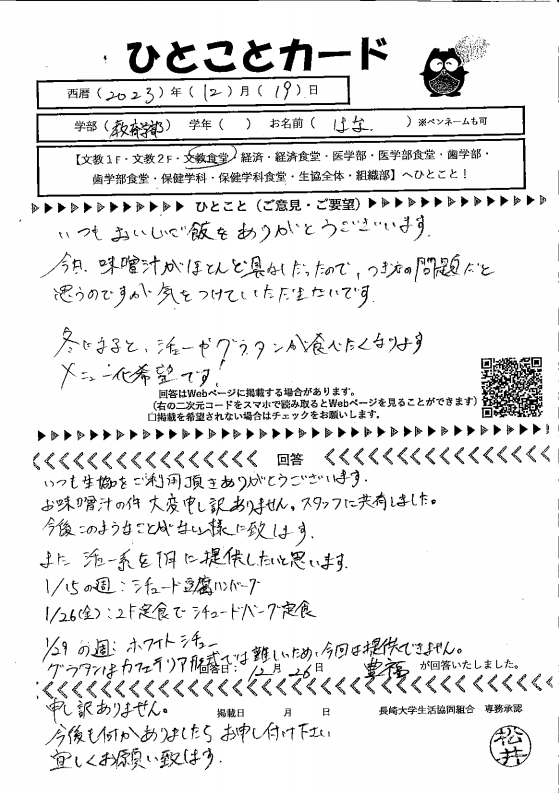 ひとことカード
西暦(2023)年(12)月(19)日
学部(教育学部) 学年( ) お名前( はな. ) ※ペンネームも可
【文教1F・文教2F・文教食堂・経済・経済食堂・医学部・医学部食堂・歯学部・
歯学部食堂・保健学科・保健学科食堂・生協全体・組織部】へひとこと!
ひとこと(ご意見・ご要望)
いつもおいしいご飯をありがとうございます。
今日、味噌汁がほとんど具なしだったので、つぎ方の問題だと
思うのですが気をつけていただきたいです。
冬になると、シチューやグラタンが食べたくなります
メニュー化希望です!
回答はWebページに掲載する場合があります。
(右の二次元コードをスマホで読み取るとWebページを見ることができます)
□掲載を希望されない場合はチェックをお願いします。
回答
いつも生協をご利用頂きありがとうございます。
お味噌汁の件 大変申し訳ありません。スタッフに共有しました。
今後このようなことがない様に致します。
また シチュー系を1月に提供したいと思います。
1/15の週:シチュード豆腐ハンバーグ
1/26(金):2F定食でシチュードバーグ定食
1/29の週:ホワイトシチュー
グラタンはカフェテリア形式では難しいため、今回は提供できません。
回答日: 12月 26日 豊福 が回答いたしました。
申し訳ありません。
掲載日 月 日 長崎大学生活協同組合 専務承認
今後も何かありましたらお申し付け下さい
宜しくお願い致します。
松井